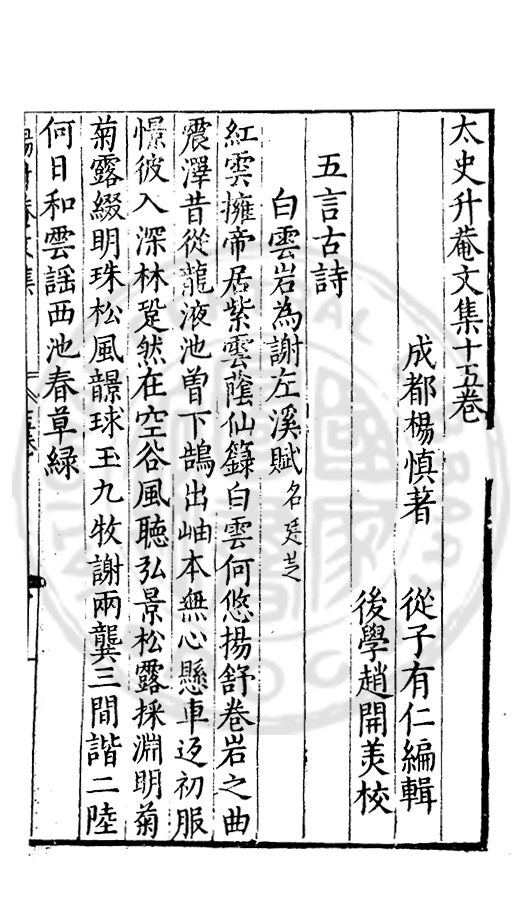 太史升菴文集十五卷
成都楊慎著　從子有仁編輯
後學趙開美校
五言古詩
白雲岩為謝左溪賦名廷芝
紅雲擁帝居紫雲蔭仙籙白雲何悠揚舒卷岩之曲
震澤昔從龍液池曽下鵠出岫本無心懸車返初服
憬彼入深林跫然在空谷風聽弘景松露採淵明菊
菊露綴明珠松風韻球玉九牧謝兩龔三間諧二陸
何日和雲謡西池春草緑